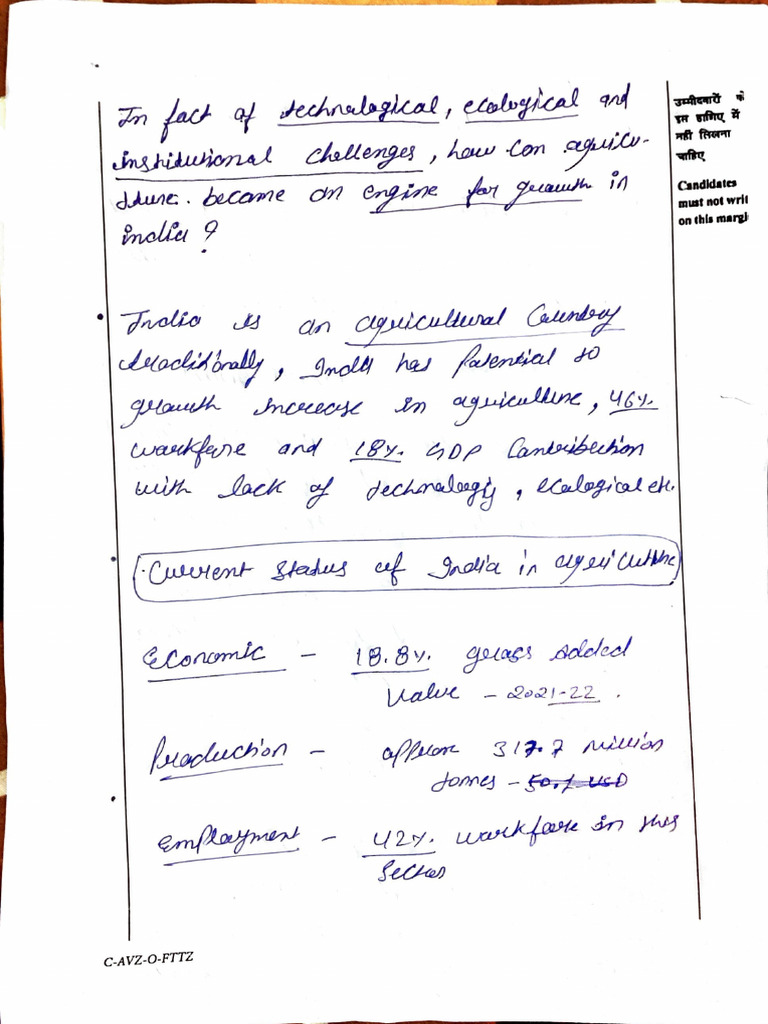 In fact of technological, ecological and
institutional challenges, how can agricu-
lture. become an engine for growth in
india ?
उम्मीदवारों को
इस हाशिए में
नहीं लिखना
चाहिए
Candidates
must not writ
on this margi
India is an agricultural Country
traditionally, India has Potential to
growth increase in agriculture, 46%
workforce and 18% GDP Contribution
with lack of technology, ecological etc.
Current Status of India in agriculture
Economic - 18.8% gross added
Value - 2021-22.
Production - approx 317.7 million
tonnes - 50.1 USD
Employment - 42% workforce in this
Sector
C-AVZ-O-FTTZ